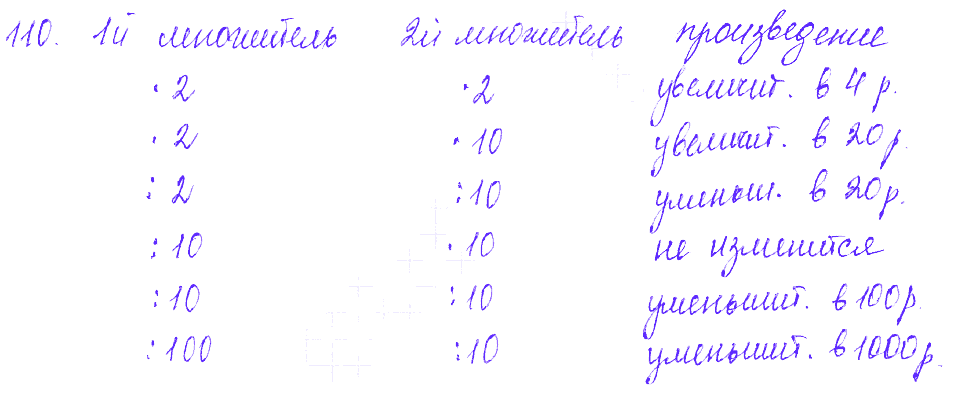 110. 1й множитель 2й множитель произведение
· 2 · 2 увеличит. в 4 р.
· 2 · 10 увеличит. в 20 р.
: 2 : 10 уменьш. в 20 р.
: 10 · 10 не изменится
: 10 : 10 уменьшит. в 100 р.
: 100 : 10 уменьшит. в 1000 р.